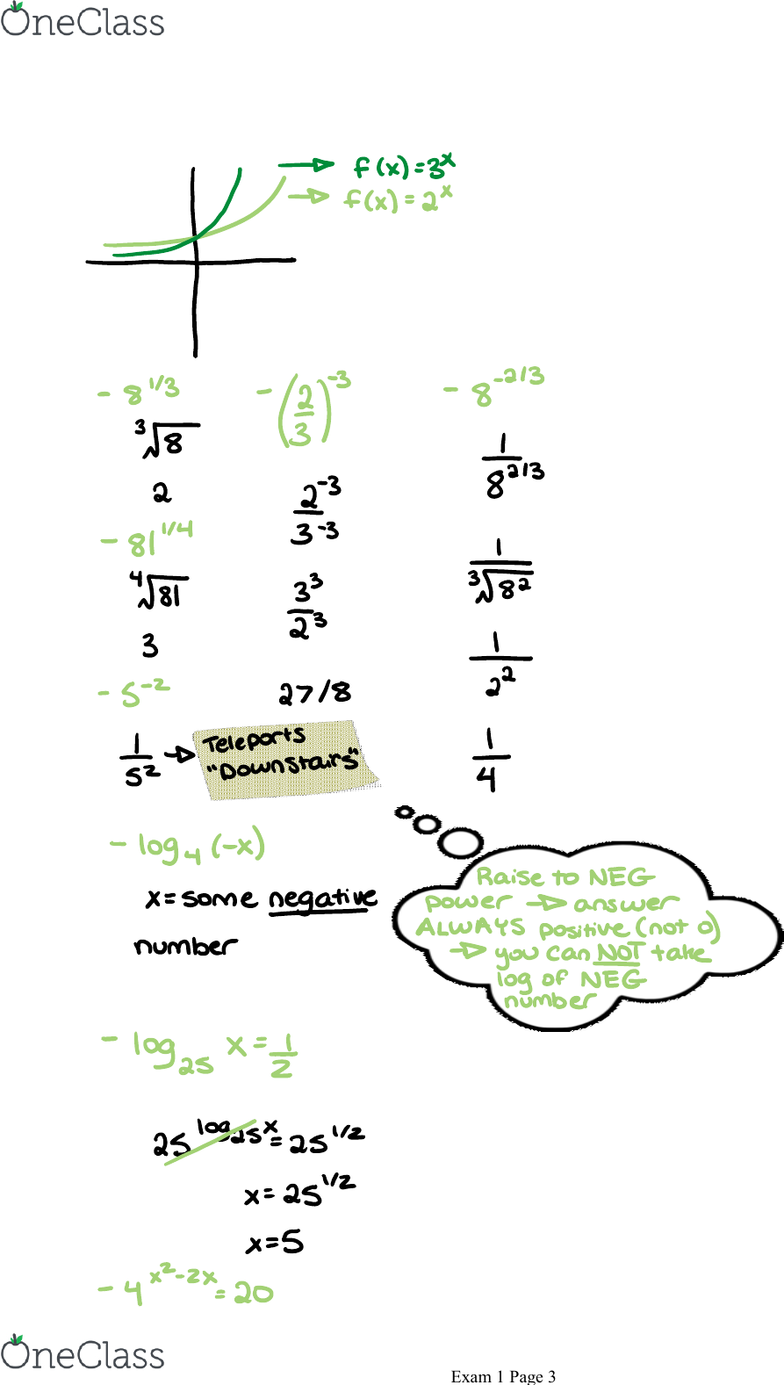 OneClass
f(x)=3^x
f(x)=2^x
- 8^1/3
∛8
2
- 81^1/4
∜81
3
- 5^-2
1/5^2
Teleports
"Downstairs"
- (2/3)^-3
2^-3/3^-3
3^3/2^3
27/8
- 8^-2/3
1/8^2/3
1/∛8^2
1/2^2
1/4
- log_4 (-x)
x=some negative
number
Raise to NEG
power → answer
ALWAYS positive (not 0)
→ you can NOT take
log of NEG
number
- log_25 x=1/2
25^log_25 x=25^1/2
x=25^1/2
x=5
- 4^x^2-2x=20
OneClass
Exam 1 Page 3